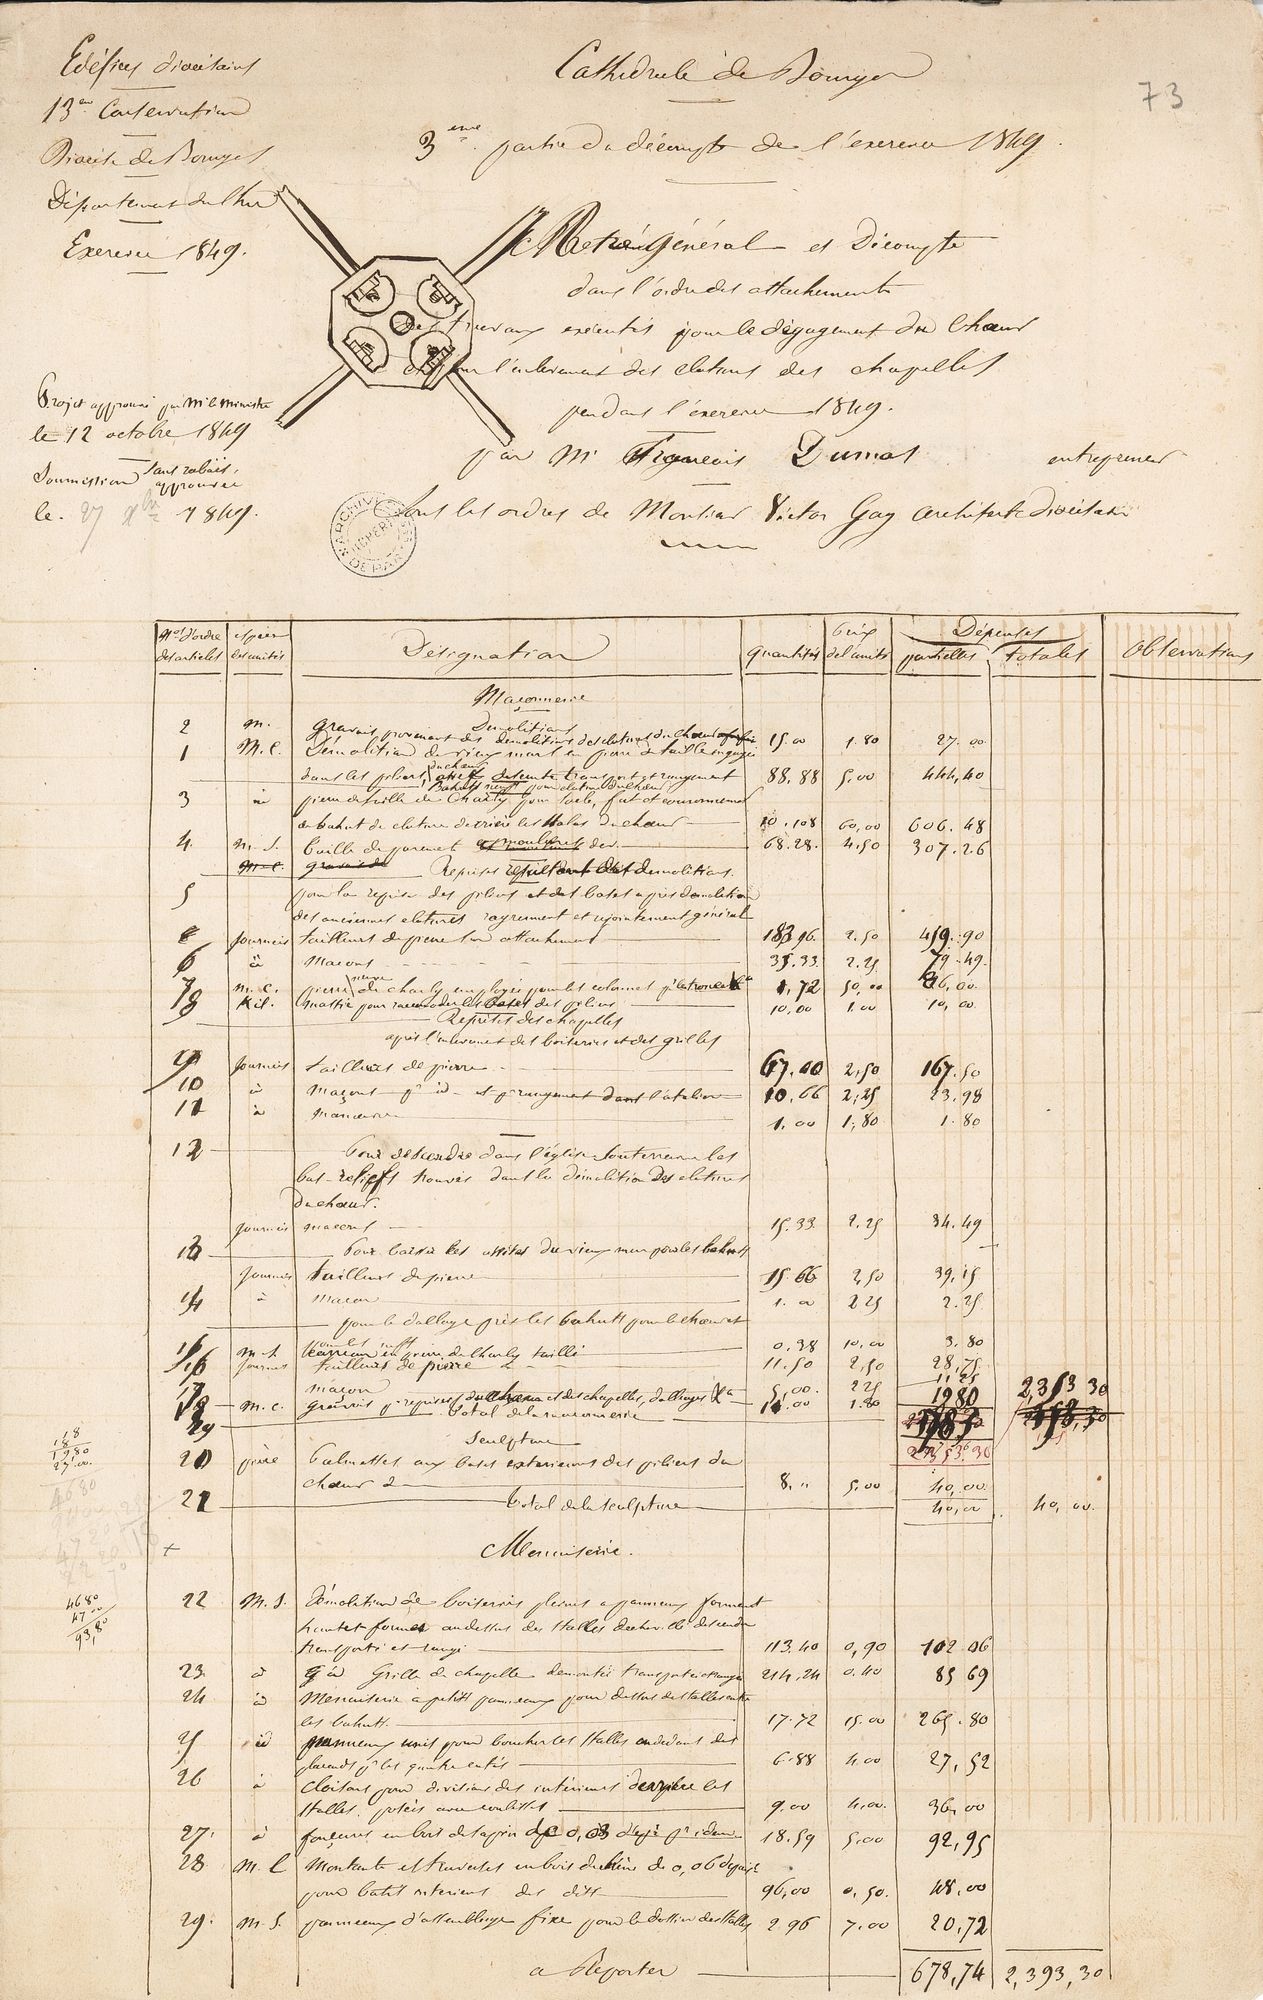 Edéfices diocésains
13e Conservation
Diocèse de Bourges
Département du Cher
Exercice 1849.
Projet approuvé par Mr le Ministre
le 12 octobre 1849
Soumission sans rabais,
approuvée
le 27 Xbre 1849.
Cathédrale de Bourges
73
3eme partie du décompte de l'exercice 1849.
Métré Général et Décompte
dans l'ordre des attachements
des travaux exécutés pour le dégagement du Chœur
et pour l'enlèvement des clotures des chapelles
pendant l'exercice 1849.
par Mr François Dumas entrepreneur
Sous les ordres de Monsieur Victor Gay architecte diocésain
ARCHIVES DEPART
Nos d'ordre des articles | espèce des unités | Désignation | quantités | Prix de l'unité | Dépenses partielles | totales | Observations
Maçonnerie
Démolitions
2 m. gravois provenant des démolitions des clotures du chœur 15.00 1.80 27.00
1 M.C. Démolition de vieux murs en pierre de taille engagés
dans les piliers du chœur, descente transport et rangement 88.88 5.00 444,40
Bahuts neufs pour cloture du chœur
3 id pierre de taille de Charly pour socle, fut et couronnement
de bahut de cloture derrière les stalles du chœur 10.108 60,00 606.48
4. m. S. taille de parement et moulures des 68.28. 4,50 307.26
m.C. gravois de Reprises résultant des démolitions.
5 pour la reprise des piliers et des bases après démolition
des anciennes clotures ragrément et rejointement général
journées tailleurs de pierre sur attachement 183,96 2.50 459.90
6 id maçons 35.33 2.25 79.49
7 m.C. pierre neuve de charly employée pour les colonnes 1,72 50,00 86,00
8 Kil. mastic pour raccomoder les bases des piliers 10.00 1.00 10,00
Reprises des chapelles
après l'enlèvement des boiseries et des grilles
9 journées tailleurs de pierre 67.00 2,50 167.50
10 id maçons pr id et pr rangement dans l'atelier 10.66 2,25 23.98
11 id manœuvre 1.00 1,80 1.80
12 Pour descendre dans l'église souterraine les
bas-reliefs trouvés dans la démolition des clotures
du chœur.
journées maçons 15.33 2.25 34.49
13 Pour baisser les assises du vieux mur pour les bahuts
journées tailleurs de pierre 15.66 2,50 39,15
14 id maçon 1.00 2.25 2.25
pour le dallage près les bahuts pour le chœur
15 m.S. en pierre de Charly taillé 0.38 10,00 3.80
16 journées tailleurs de pierre 11.50 2,50 28,75
17 maçon 5,00. 2.25 11.25
18 m.C. gravois pr reprises du chœur et des chapelles, dallages &a 11.00 1.80 19 80
19 Total de la maçonnerie 2353.30 2,353 30
Sculpture
20 pièce Palmettes aux bases extérieures des piliers du
chœur 8.,, 5,00 40,00.
21 Total de la sculpture 40,00 40,00.
18
18
1980
27.00
4680
4680
47 00
93,80
Menuiserie.
22 M.S. Démolition de boiseries pleines a panneaux formant
hautes formes au dessus des stalles descendu
transporté et rangé 113.40 0,90 102 06
23. id Grille de chapelle démontée transportée et rangée 214.24 0.40 85 69
24 id Menuiserie a petits panneaux pour dossiers de stalles entre
les bahuts. 17.72 15.00 265.80
25 id panneaux unis pour boucher les stalles
pr les quatre entrées 6.88 4.00 27,52
26 id Cloisons pour divisions des intérieurs derrière les
stalles. posées avec coulisses 9.00 4.00. 36,00
27. id fonçures en bois de sapin de 0,03 d'ep. pr idem 18.59 5,00 92,95
28 m.l Montants et traverses en bois de chêne de 0,06
pour batis intérieurs des dits 96,00 0,50. 48,00
29. M.S. panneaux d'assemblage fixe pour le dossier des stalles 2 96 7.00 20,72
a Reporter 678,74 2,393,30